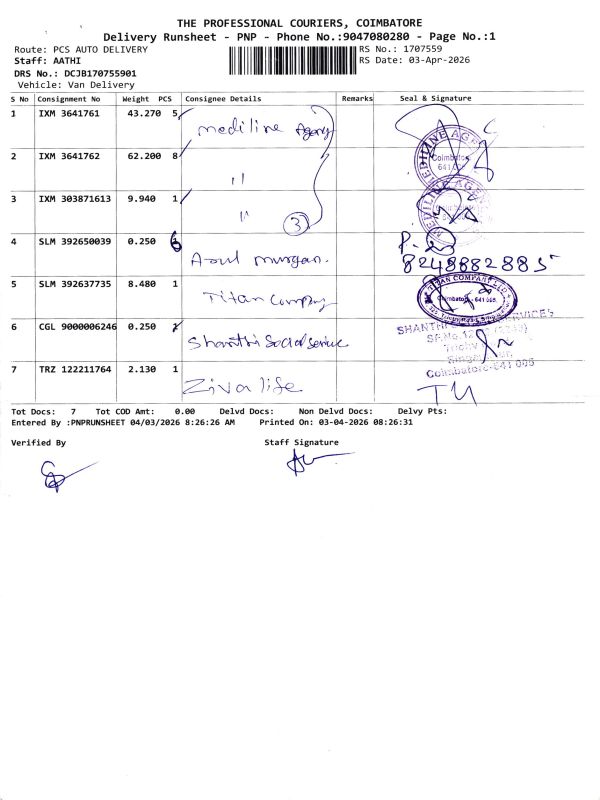 THE PROFESSIONAL COURIERS, COIMBATORE
Delivery Runsheet - PNP - Phone No.:9047080280 - Page No.:1
Route: PCS AUTO DELIVERY RS No.: 1707559
Staff: AATHI RS Date: 03-Apr-2026
DRS No.: DCJB170755901
Vehicle: Van Delivery
S No Consignment No Weight PCS Consignee Details Remarks Seal & Signature
1 IXM 3641761 43.270 5 mediline Agency
2 IXM 3641762 62.200 8 "
MEDILINE AGENCY
Coimbatore
3 IXM 303871613 9.940 1 "
3
4 SLM 392650039 0.250 Arul murgan.
8248882885
5 SLM 392637735 8.480 1 Titan Company
TITAN COMPANY LTD
Coimbatore - 641 005.
6 CGL 9000006246 0.250 Shanthi Social Service
SHANTHI SERVICES
Coimbatore-641 005
7 TRZ 122211764 2.130 1 Ziva life
Tot Docs: 7 Tot COD Amt: 0.00 Delvd Docs: Non Delvd Docs: Delvy Pts:
Entered By :PNPRUNSHEET 04/03/2026 8:26:26 AM Printed On: 03-04-2026 08:26:31
Verified By Staff Signature